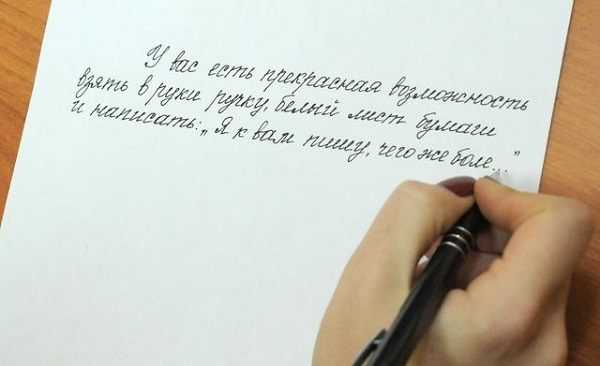 У вас есть прекрасная возможность
взять в руки ручку, белый лист бумаги
и написать: „Я к вам пишу, чего же боле..."